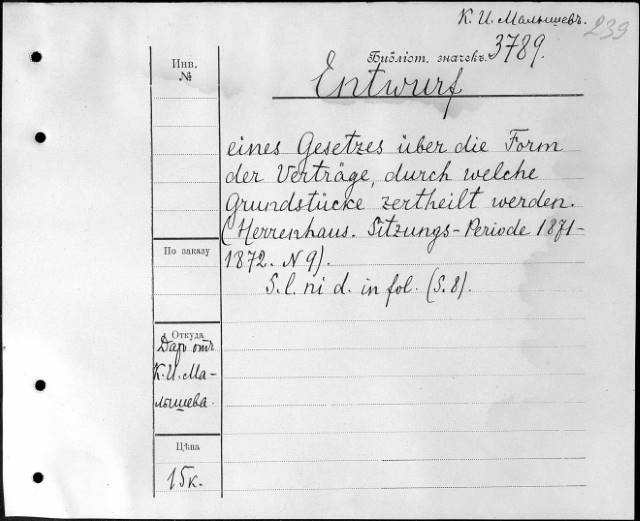 К. И. Малышевъ.
239
Инв.
№
Библіот. значекъ.
3789.
Entwurf
eines Gesetzes über die Form
der Verträge, durch welche
Grundstücke zertheilt werden.
(Herrenhaus. Sitzungs-Periode 1871-
1872. N 9).
S. l. ni d. in fol. (S. 8).
По заказу
Откуда
Даръ отъ
К. И. Ма-
лышева.
Цѣна
15 к.